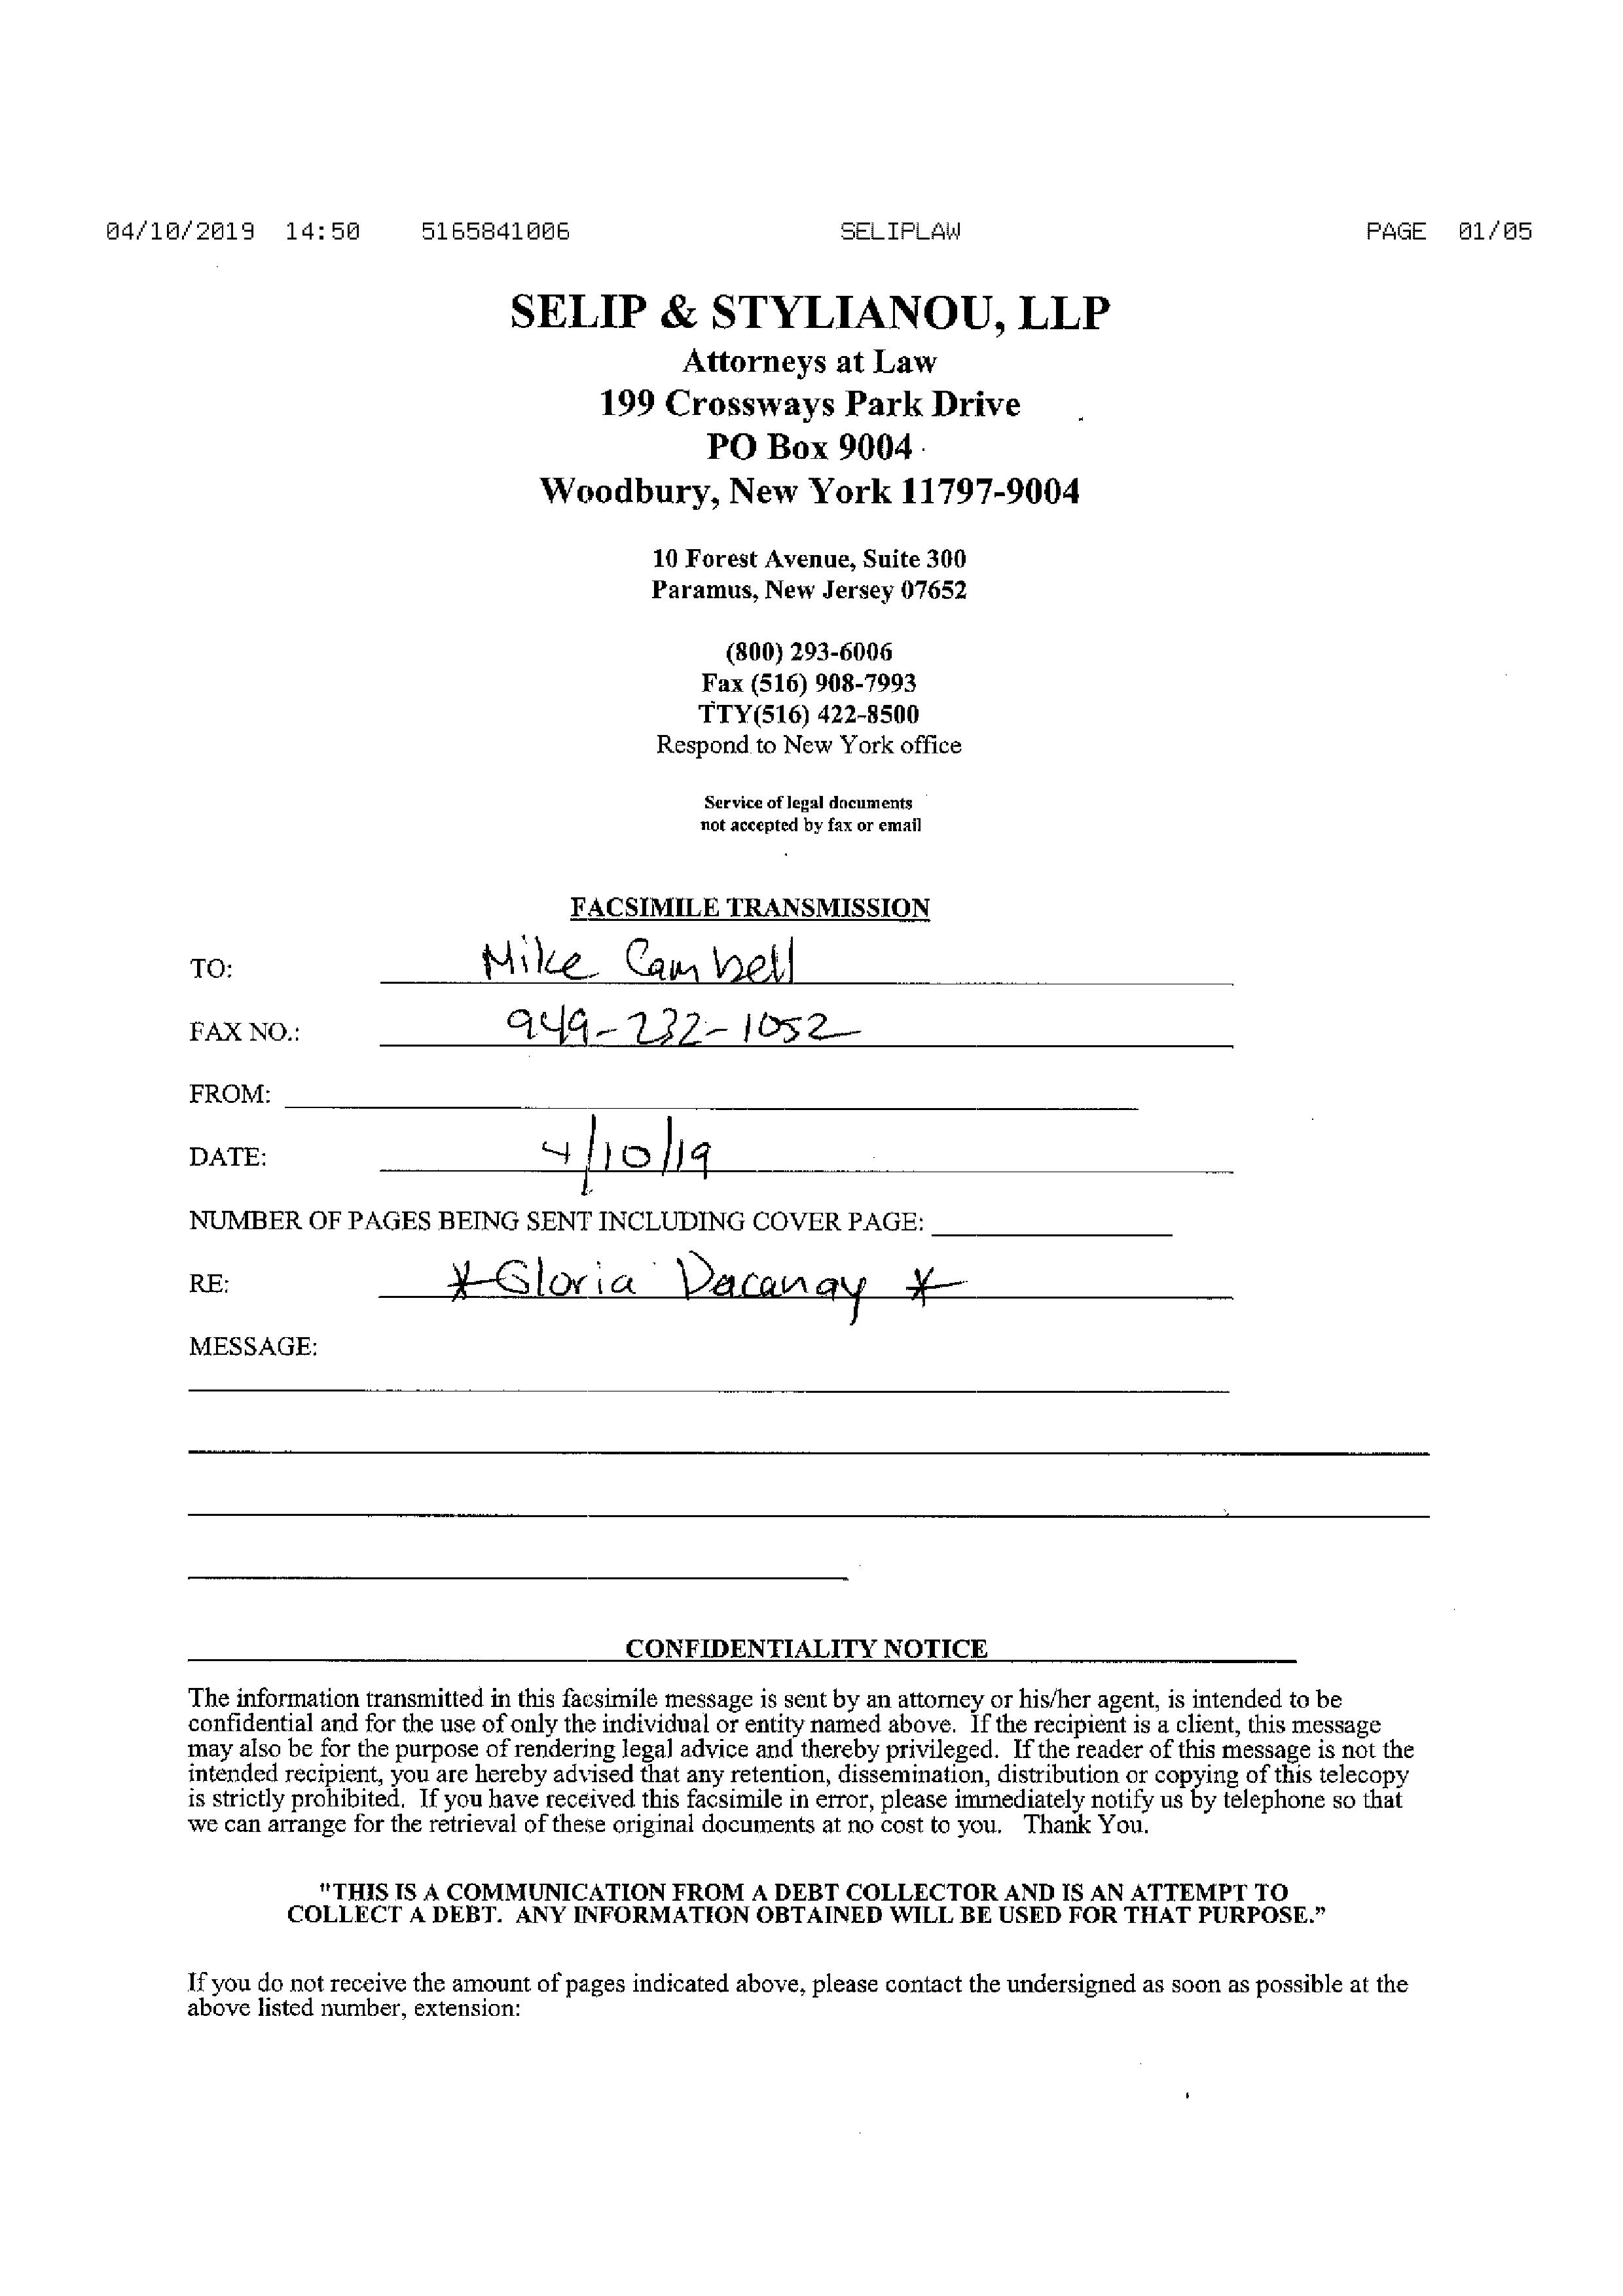 04/10/2019 14:50 5165841006 SELIPLAW PAGE 01/05
SELIP & STYLIANOU, LLP
Attorneys at Law
199 Crossways Park Drive
PO Box 9004
Woodbury, New York 11797-9004
10 Forest Avenue, Suite 300
Paramus, New Jersey 07652
(800) 293-6006
Fax (516) 908-7993
TTY(516) 422-8500
Respond to New York office
Service of legal documents
not accepted by fax or email
FACSIMILE TRANSMISSION
TO: Mike Cambell
FAX NO.: 949-232-1052
FROM:
DATE: 4/10/19
NUMBER OF PAGES BEING SENT INCLUDING COVER PAGE:
RE: *Gloria Dacanay *
MESSAGE:
CONFIDENTIALITY NOTICE
The information transmitted in this facsimile message is sent by an attorney or his/her agent, is intended to be
confidential and for the use of only the individual or entity named above. If the recipient is a client, this message
may also be for the purpose of rendering legal advice and thereby privileged. If the reader of this message is not the
intended recipient, you are hereby advised that any retention, dissemination, distribution or copying of this telecopy
is strictly prohibited. If you have received this facsimile in error, please immediately notify us by telephone so that
we can arrange for the retrieval of these original documents at no cost to you. Thank You.
"THIS IS A COMMUNICATION FROM A DEBT COLLECTOR AND IS AN ATTEMPT TO
COLLECT A DEBT. ANY INFORMATION OBTAINED WILL BE USED FOR THAT PURPOSE."
If you do not receive the amount of pages indicated above, please contact the undersigned as soon as possible at the
above listed number, extension: